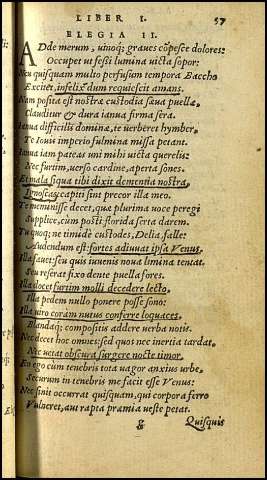 LIBER I. 57
ELEGIA II.
ADde merum, uinoq; graues cõpesce dolores:
Occupet ut fessi lumina uicta sopor:
Neu quisquam multo perfusum tempora Baccho
Excitet, infelix dum requiescit amans.
Nam posita est nostræ custodia sæua puellæ,
Clauditur & dura ianua firma sera.
Ianua difficilis dominæ, te uerberet hymber,
Te Iouis imperio fulmina missa petant.
Ianua iam pateas uni mihi uicta querelis:
Nec furtim, uerso cardine, aperta sones.
Et mala siqua tibi dixit dementia nostra,
Ignoscas: capiti sint precor illa meo.
Te meminisse decet, quæ plurima uoce peregi
Supplice, cum posti florida serta darem.
Tu quoq; ne timidè custodes, Delia, falle:
Audendum est: fortes adiuuat ipsa Venus.
Illa fauet: seu quis iuuenis noua limina tentat.
Seu referat fixo dente puella fores.
Illa docet furtim molli decedere lecto,
Illa pedem nullo ponere posse sono:
Illa uiro coram nutus conferre loquaces,
Blandaq; compositis addere uerba notis.
Nec docet hoc omnes: sed quos nec inertia tardat,
Nec uetat obscura surgere nocte timor.
En ego cùm tenebris tota uagor anxius urbe,
Securum in tenebris me facit esse Venus:
Nec sinit occurrat quisquam, qui corpora ferro
Vulneret, aut rapta præmia ueste petat.
g Quisquis